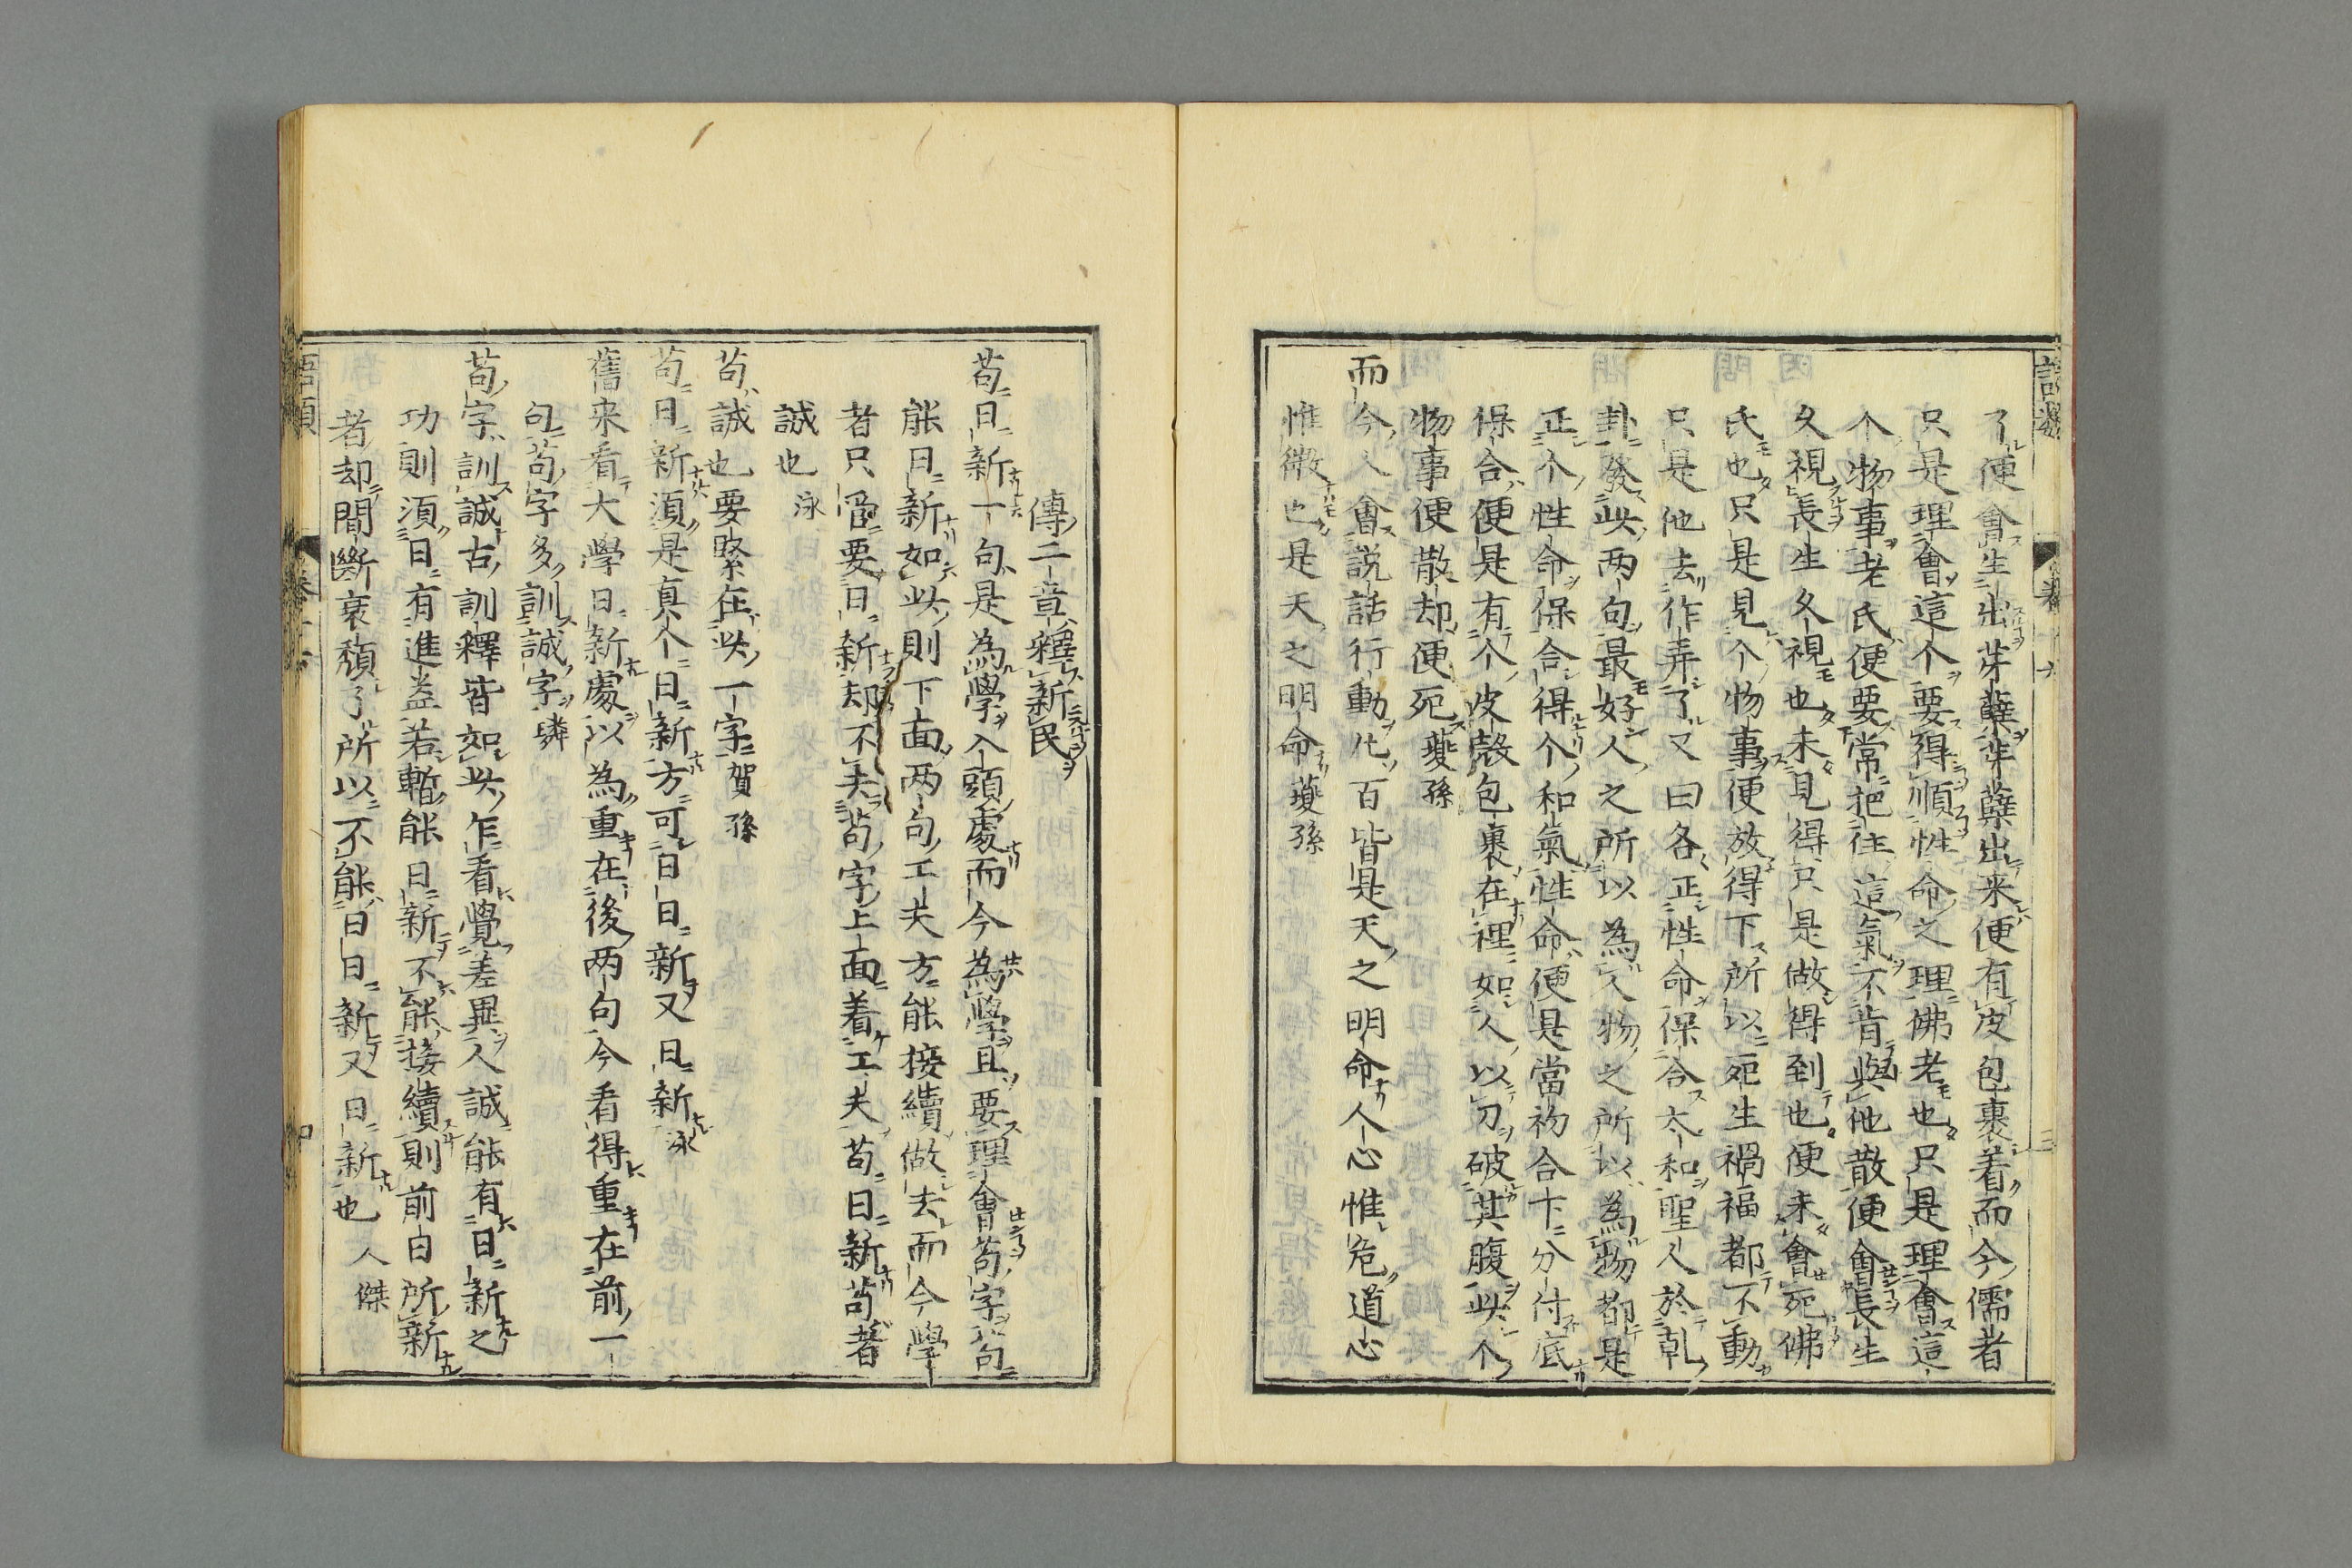 了便會生出芽蘖芽蘖出来便有皮包裹着而今儒者
只是理會這个要得順性命之理佛老也只是理會這
个物事老氏便要常把住這氣不肯與他散便會長生
久視長生久視也未見得只是做得到也便未會死佛
氏也只是見个物事便放得下所以死生禍福都不動
只是他去作弄了又曰各正性命保合太和聖人於乾
卦發此两句最好人之所以為人物之所以為物都是
正个性命保合得个和氣性命便是當初合下分付底
保合便是有个皮殼包裹在裡如人以刀破其腹此个
物事便散却便死夔孫
而今人會説話行動凡百皆是天之明命人心惟危道心
惟微也是天之明命夔孫
傳二章釋新民
苟日新一句是為學入頭處而今為學且要理會苟字苟
能日新如此則下面两句工夫方能接續做去而今學
者只管要日新却不去苟字上面着工夫苟日新苟者
誠也 泳
苟誠也要緊在此一字賀孫
苟日新須是真个日新方可日日新又日新泳
舊来看大學日新處以為重在後两句今看得重在前一
句苟字多訓誠字 璘
苟字訓誠古訓釋皆如此乍看覺差異人誠能有日新之
功則須日有進益若暫能日新不能接續則前日所新
者却間斷衰頹了所以不能日日新又日新也 人傑
語類
卷十六